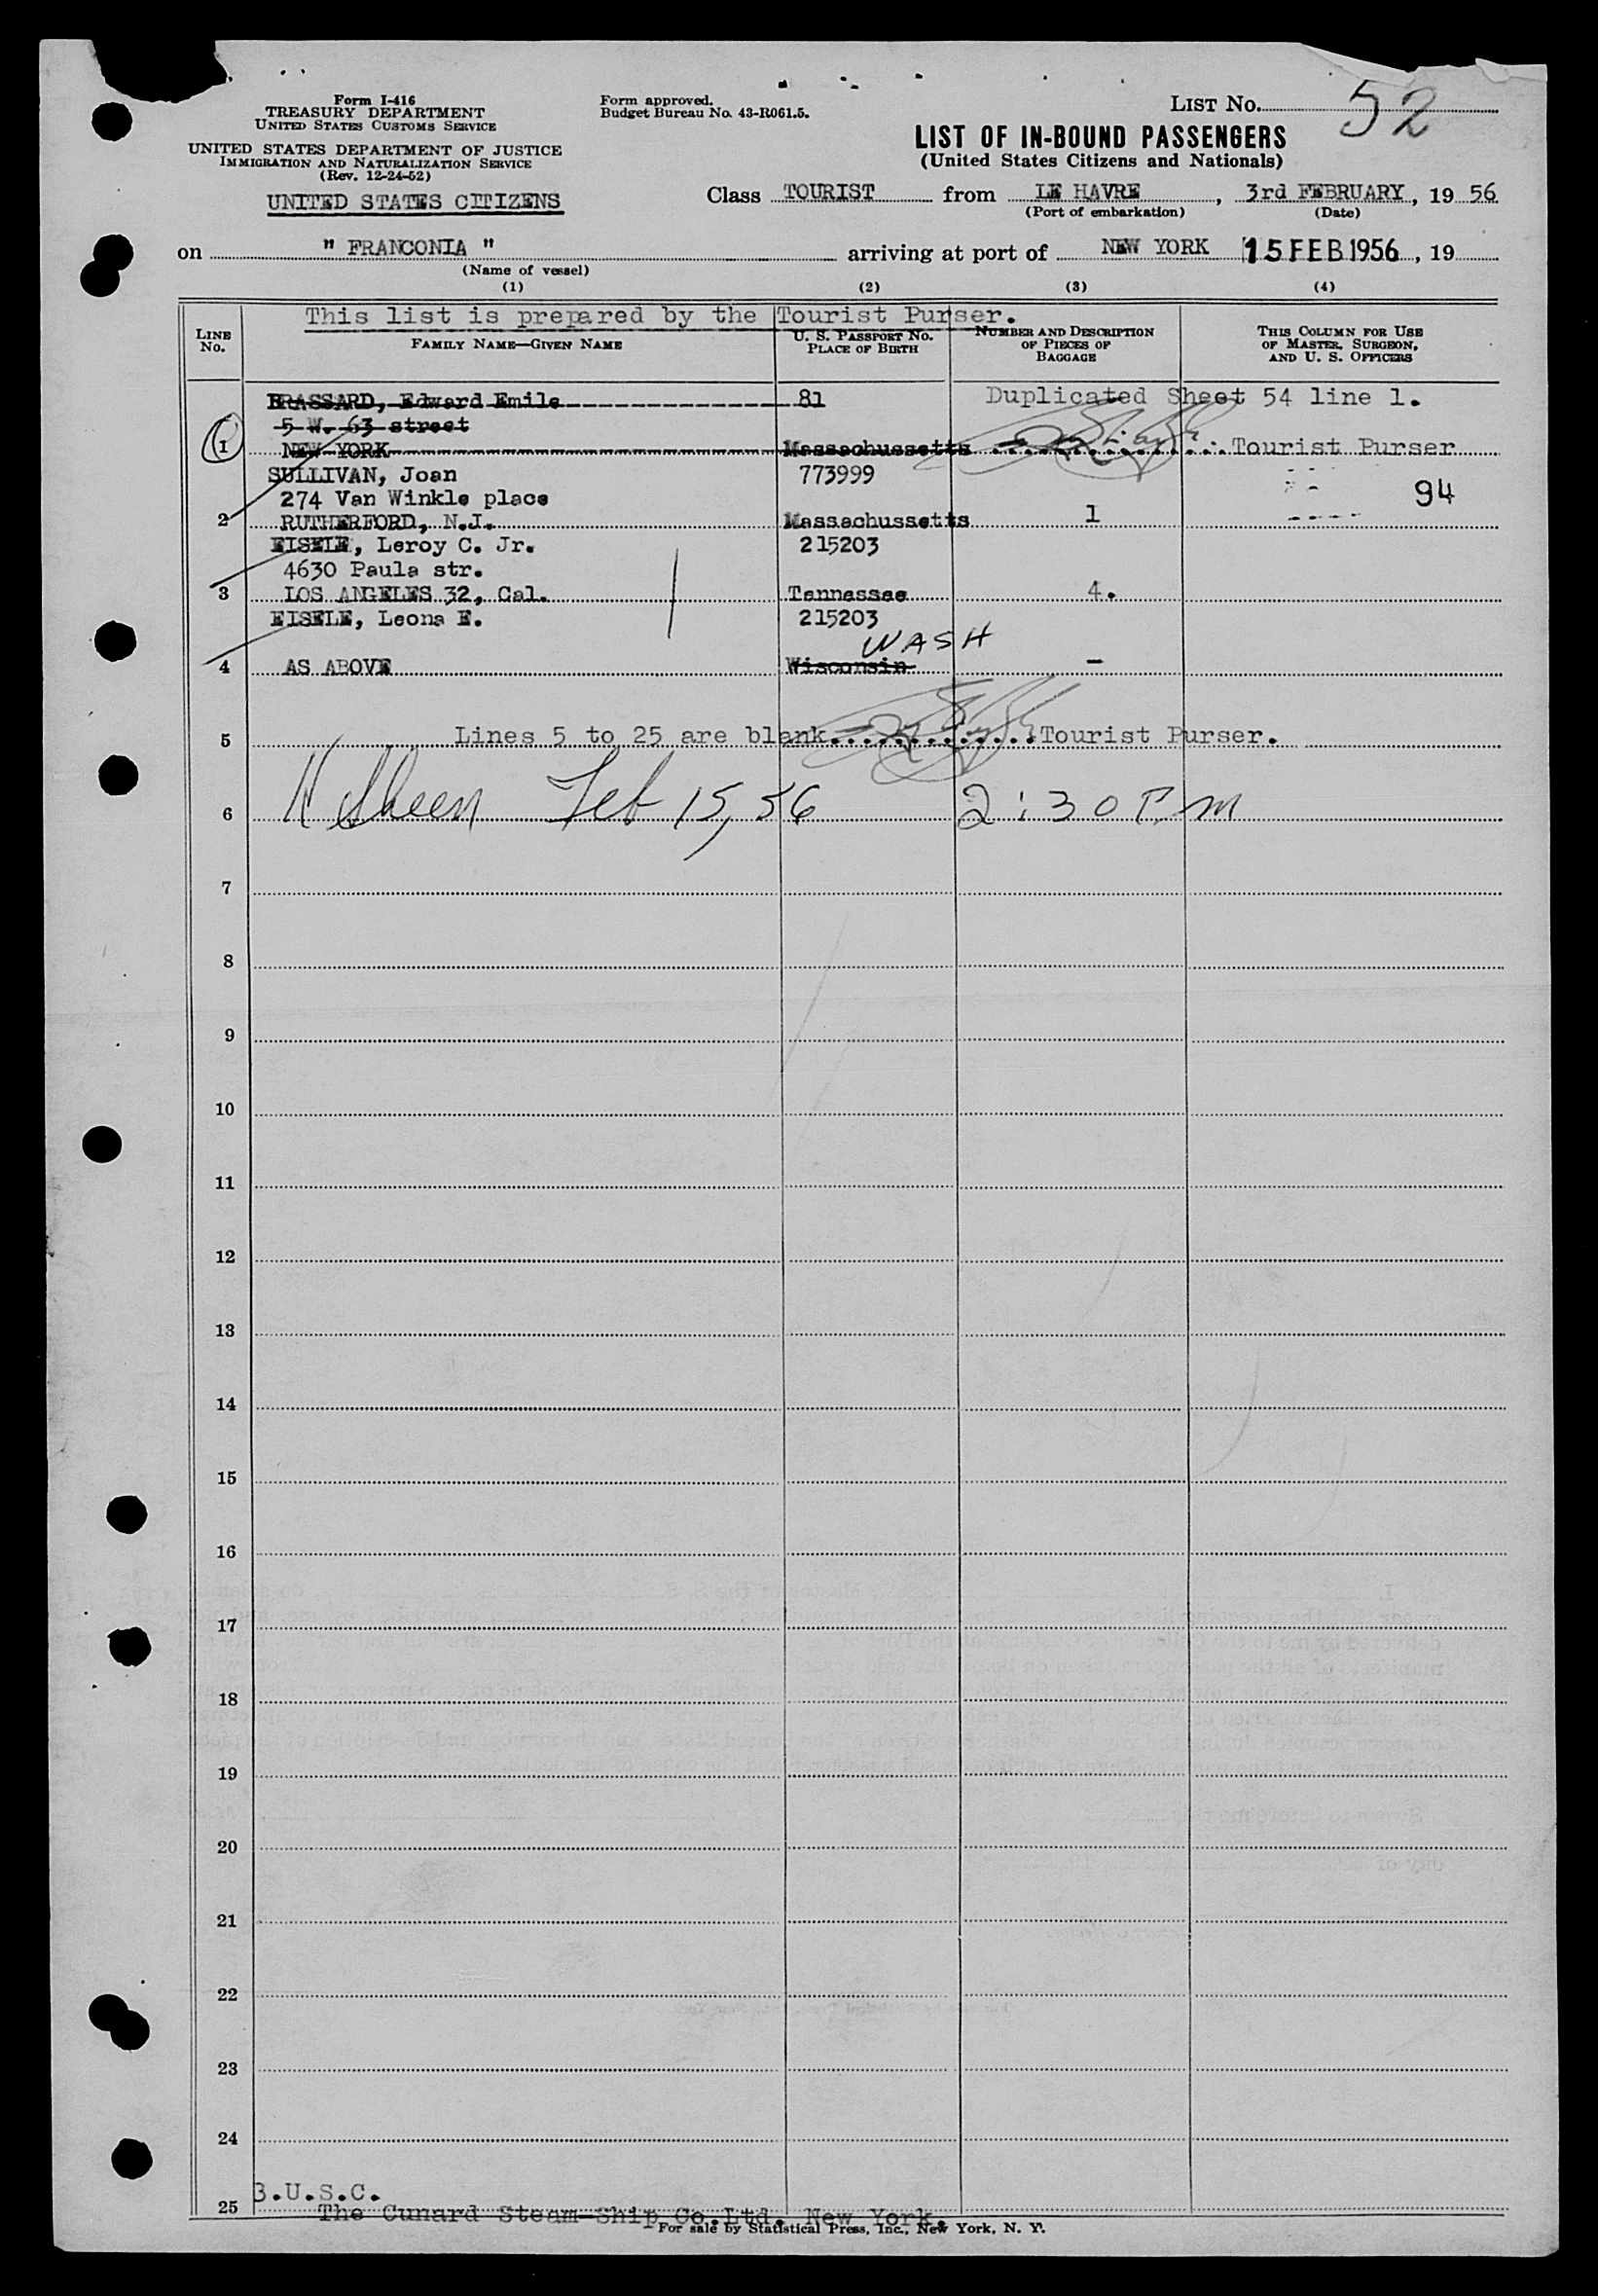 Form I-416
TREASURY DEPARTMENT
UNITED STATES CUSTOMS SERVICE
UNITED STATES DEPARTMENT OF JUSTICE
IMMIGRATION AND NATURALIZATION SERVICE
(Rev. 12-24-52)
UNITED STATES CITIZENS
Form approved.
Budget Bureau No. 43-R061.5.
LIST No. 52
LIST OF IN-BOUND PASSENGERS
(United States Citizens and Nationals)
Class TOURIST from LE HAVRE, 3rd FEBRUARY, 19 56
(Port of embarkation) (Date)
on " FRANCONIA " arriving at port of NEW YORK 15 FEB 1956, 19
(Name of vessel)
(1) (2) (3) (4)
This list is prepared by the Tourist Purser.
LINE No. FAMILY NAME—GIVEN NAME U. S. PASSPORT No. PLACE OF BIRTH NUMBER AND DESCRIPTION OF PIECES OF BAGGAGE THIS COLUMN FOR USE OF MASTER, SURGEON, AND U. S. OFFICERS
BRASSARD, Edward Emile 81 Duplicated Sheet 54 line 1.
5 W. 63 street
1 NEW YORK Massachussetts Tourist Purser
SULLIVAN, Joan 773999
274 Van Winkle place 94
2 RUTHERFORD, N.J. Massachussetts 1
EISELE, Leroy C. Jr. 215203
4630 Paula str.
3 LOS ANGELES 32, Cal. Tennessee 4.
EISELE, Leona E. 215203
WASH
4 AS ABOVE Wisconsin -
5 Lines 5 to 25 are blank.............Tourist Purser.
6 H Sheen Feb 15, 56 2:30 P.M
7
8
9
10
11
12
13
14
15
16
17
18
19
20
21
22
23
24
3.U.S.C.
25 The Cunard Steam-Ship Co.Ltd. New York.
For sale by Statistical Press, Inc., New York, N. Y.